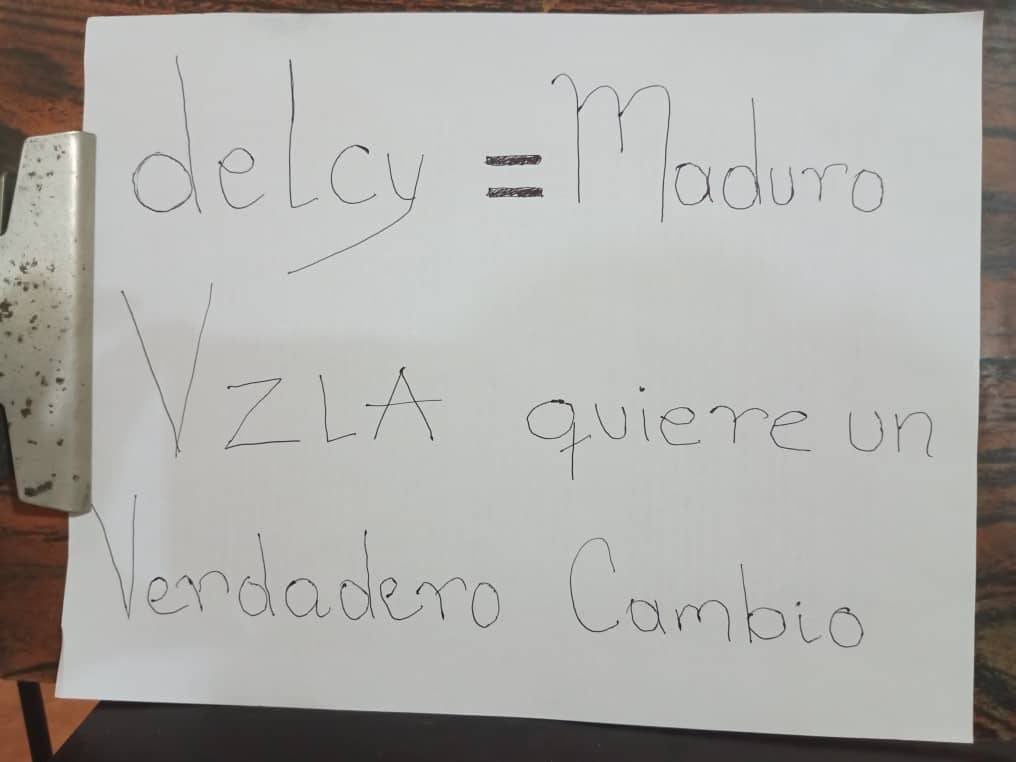 deLcy = Maduro
VZLA quiere un
Verdadero Cambio